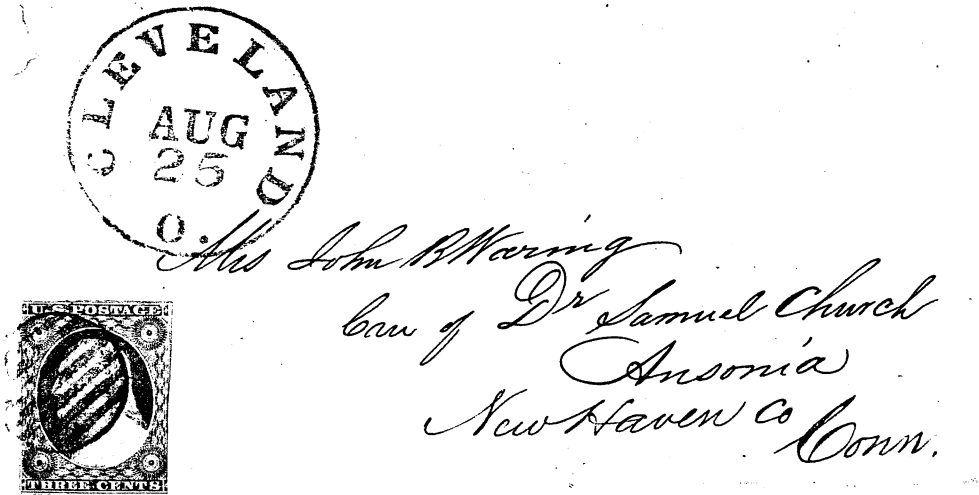 CLEVELAND
AUG
25
O.
Mrs John B Waring
Care of Dr Samuel Church
Ansonia
New Haven Co
Conn.
U.S. POSTAGE
THREE CENTS